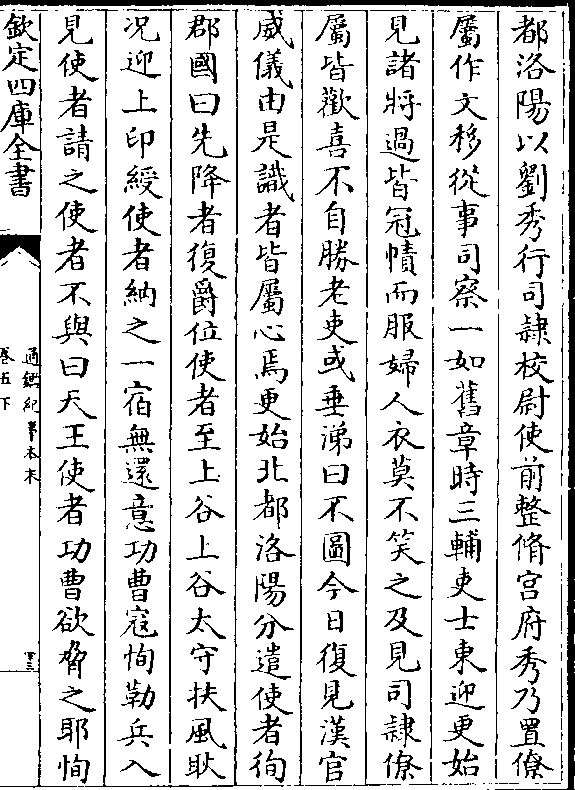 都洛陽以劉秀行司隸校尉使前整脩宫府秀乃置僚
屬作文移從事司察一如舊章時三輔吏士東迎更始
見諸將過皆冠幘而服婦人衣莫不笑之及見司隸僚
屬皆歡喜不自勝老吏或垂涕曰不圖今日復見漢官
威儀由是識者皆屬心焉更始北都洛陽分遣使者徇
郡國曰先降者復爵位使者至上谷上谷太守扶風耿
况迎上印綬使者納之一宿無還意功曹寇恂勒兵入
見使者請之使者不與曰天王使者功曹欲脅之耶恂
欽定四庫全書
通鑑紀事本末
卷五下